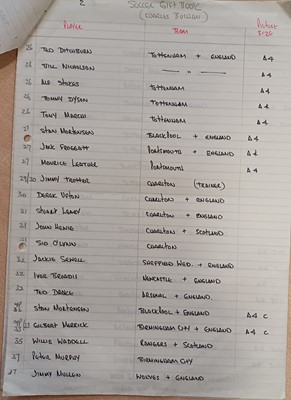 2 Soccer Gift Book
(Charles Buchan)
Player Team Picture Size
26 Ted Ditchburn Tottenham + England A4
26 Bill Nicholson " A4
26 Alf Stokes Tottenham A4
26 Tommy Dyson Tottenham A4
26 Tony Marchi Tottenham A4
27 Stan Mortensen Blackpool + England A4
27 Jack Froggatt Portsmouth + England A4
27 Maurice Leather Portsmouth A4
29/30 Jimmy Trotter Charlton (Trainer)
30 Derek Ufton Charlton + England
31 Stuart Leary Charlton + England
31 John Hewie Charlton + Scotland
31 Sid O'Linn Charlton
32 Jackie Sewell Sheffield Wed. + England
32 Ivor Broadis Newcastle + England
32 Ted Drake Arsenal + England
Stan Mortensen Blackpool + England A4 C
Gilbert Merrick Birmingham City + England A4 C
35 Willie Waddell Rangers + Scotland
37 Peter Murphy Birmingham City
37 Jimmy Mullen Wolves + England